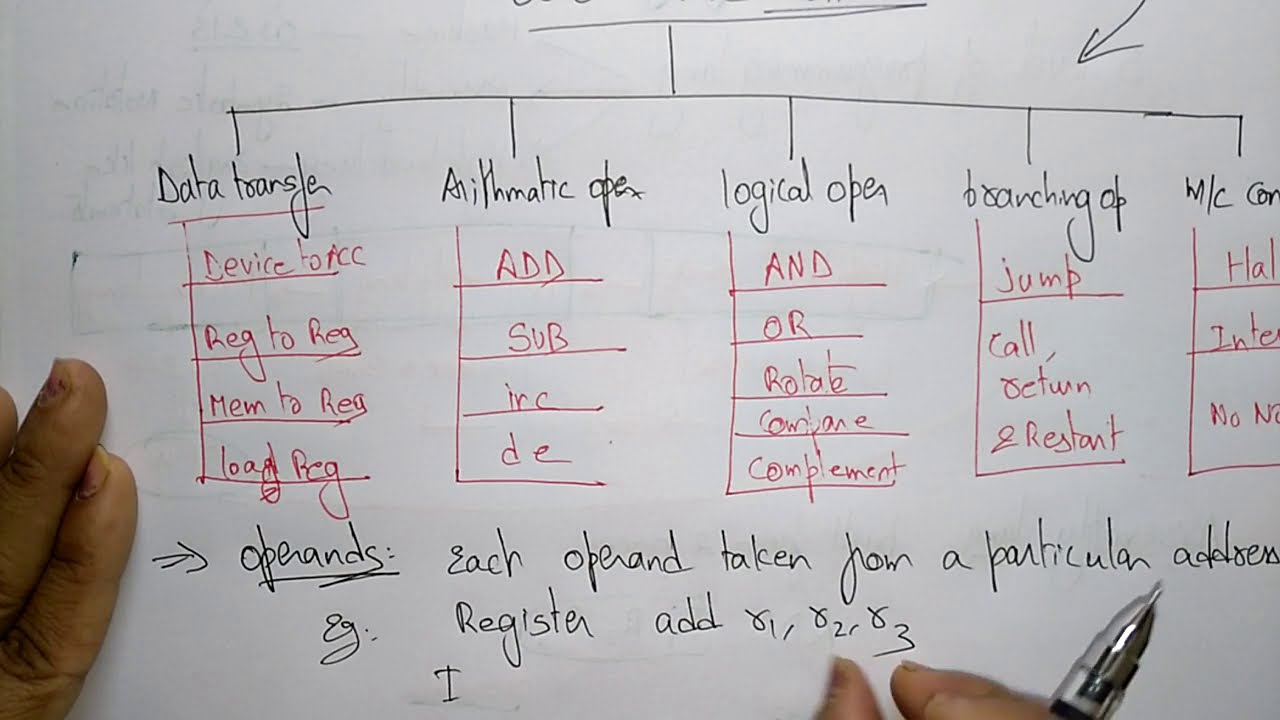 Data transfer
Device to ACC
Reg to Reg
Mem to Reg
load Reg
Arithmatic oper
ADD
SUB
inc
de
logical oper
AND
OR
Rotate
Compare
Complement
branching op
jump
Call,
return
& Restart
M/c Con
Hal
Inte
No No
⇒ operands: Each operand taken from a particular address
Eg: Register add r1, r2, r3
I